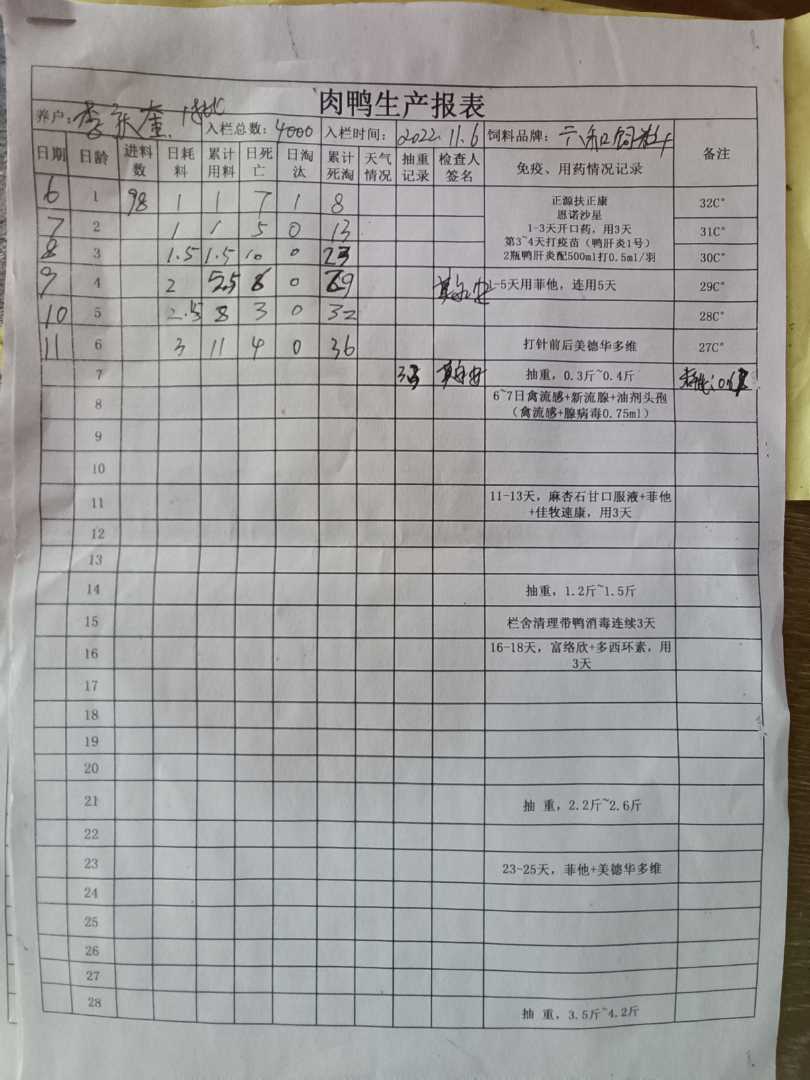 肉鸭生产报表
养户：
入栏总数：4000 入栏时间：2022.11.6 饲料品牌：六和饲料
日期 日龄 进料数 日耗料 累计用料 日死亡 日淘汰 累计死淘 天气情况 抽重记录 检查人签名 免疫、用药情况记录 备注
6 1 98 1 1 7 1 8 正源扶正康 32C°
恩诺沙星
7 2 1 1 5 0 13 1-3天开口药，用3天 31C°
第3~4天打疫苗（鸭肝炎1号）
8 3 1.5 1.5 10 0 23 2瓶鸭肝炎配500ml打0.5ml/羽 30C°
9 4 2 5.5 6 0 29 1-5天用菲他，连用5天 29C°
10 5 2.5 8 3 0 32 28C°
11 6 3 11 4 0 36 打针前后美德华多维 27C°
7 抽重，0.3斤~0.4斤
8 6~7日禽流感+新流腺+油剂头孢
（禽流感+腺病毒0.75ml）
9
10
11 11-13天，麻杏石甘口服液+菲他
+佳牧速康，用3天
12
13
14 抽重，1.2斤~1.5斤
15 栏舍清理带鸭消毒连续3天
16 16-18天，富络欣+多西环素，用
3天
17
18
19
20
21 抽 重，2.2斤~2.6斤
22
23 23-25天，菲他+美德华多维
24
25
26
27
28 抽 重，3.5斤~4.2斤